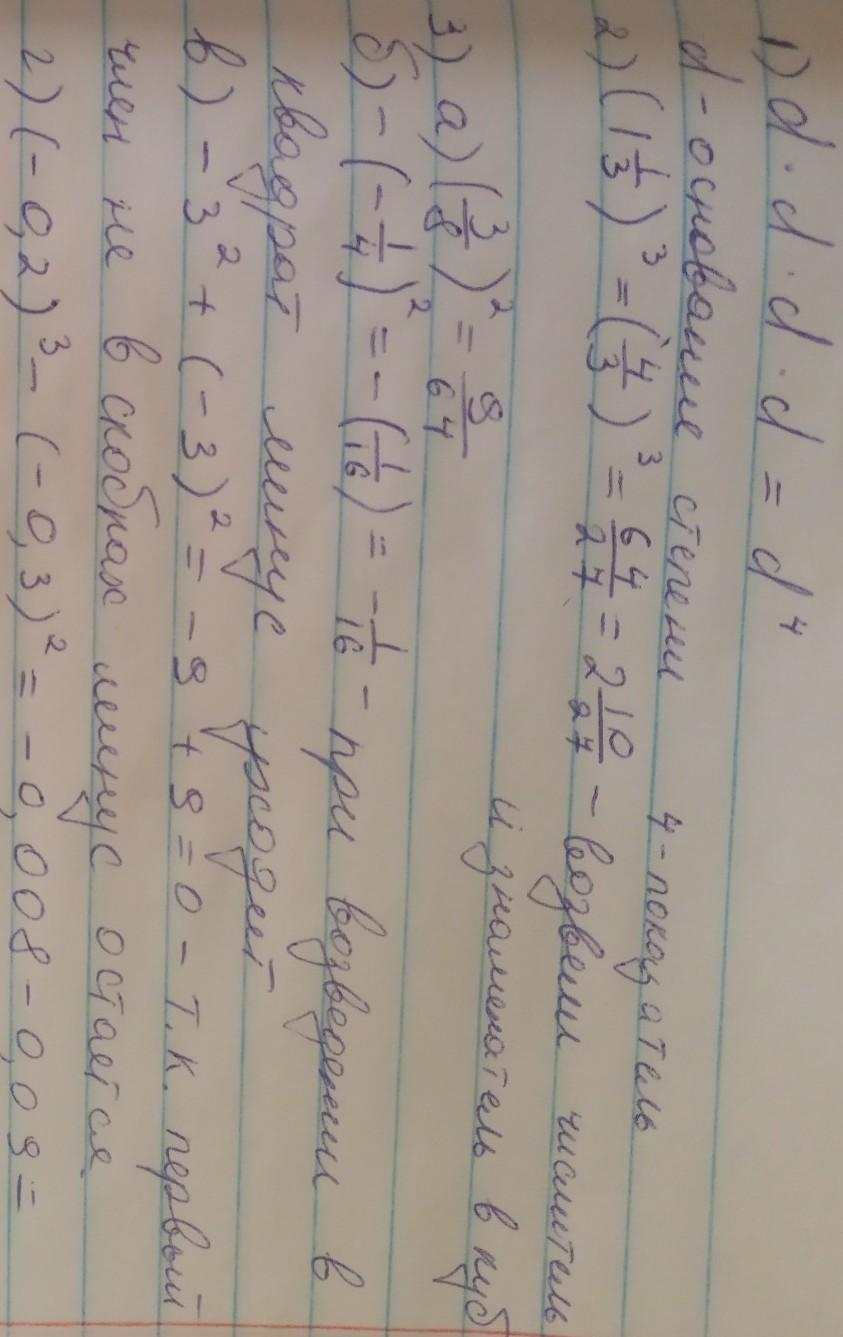 1) d · d · d · d = d⁴
d - основание степени 4 - показатель
2) (1 1/3)³ = (4/3)³ = 64/27 = 2 10/27 - возвели числитель
и знаменатель в куб
3) а) (3/8)² = 9/64
б) - (-1/4)² = - (1/16) = -1/16 - при возведении в
квадрат минус уходит
в) - 3² + (-3)² = - 9 + 9 = 0 - т.к. первый
член не в скобках минус остаётся
г) (-0,2)³ - (-0,3)² = - 0,008 - 0,09 =